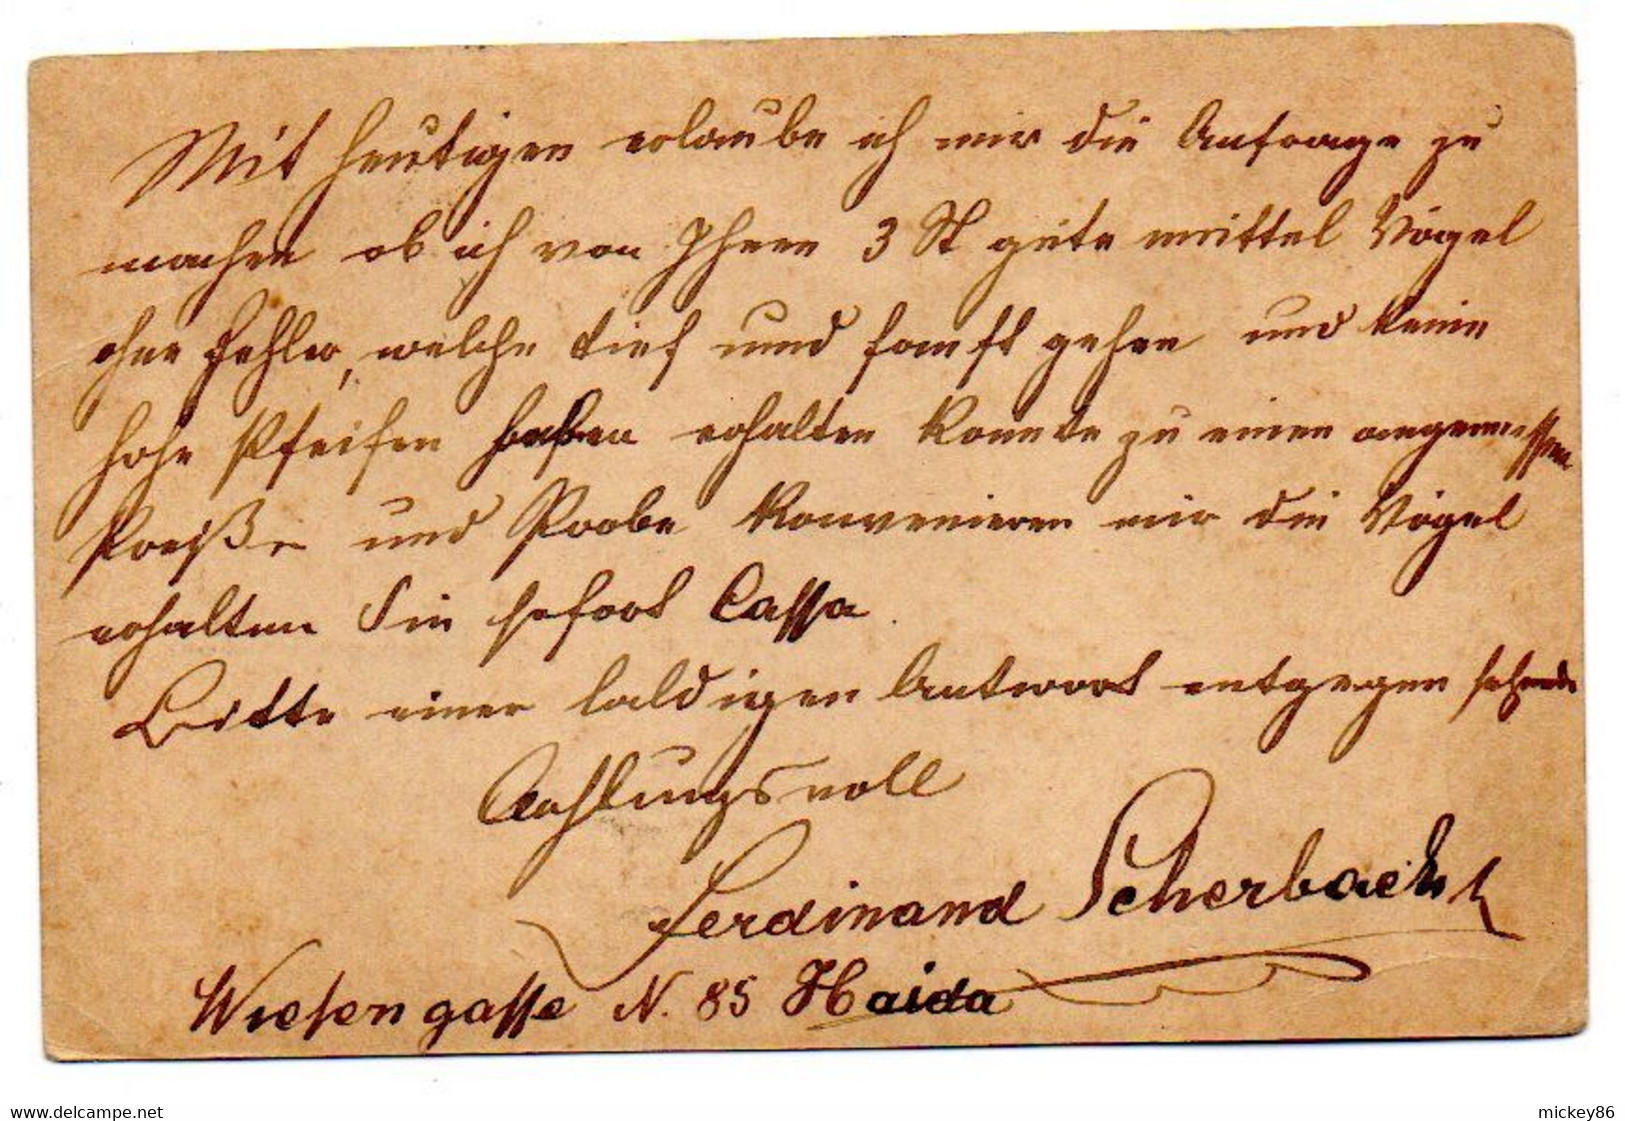 Mit heutigen erlaube ich mir die Anfrage zu
machen ob ich von Ihnen 3 St gute mittel Vögel
ohne Fehler, welche tief und sanft gehen und keine
hohe Pfeifen haben erhalten konnte zu einen angemessen
Preiße und Probe konvenieren mir die Vögel
erhalten Sie sofort Cassa.
Bitte einer baldigen Antwort entgegen sehende
Achtungsvoll
Ferdinand Scherbach
Wiesengasse N. 85 Haida
www.delcampe.net
mickey86